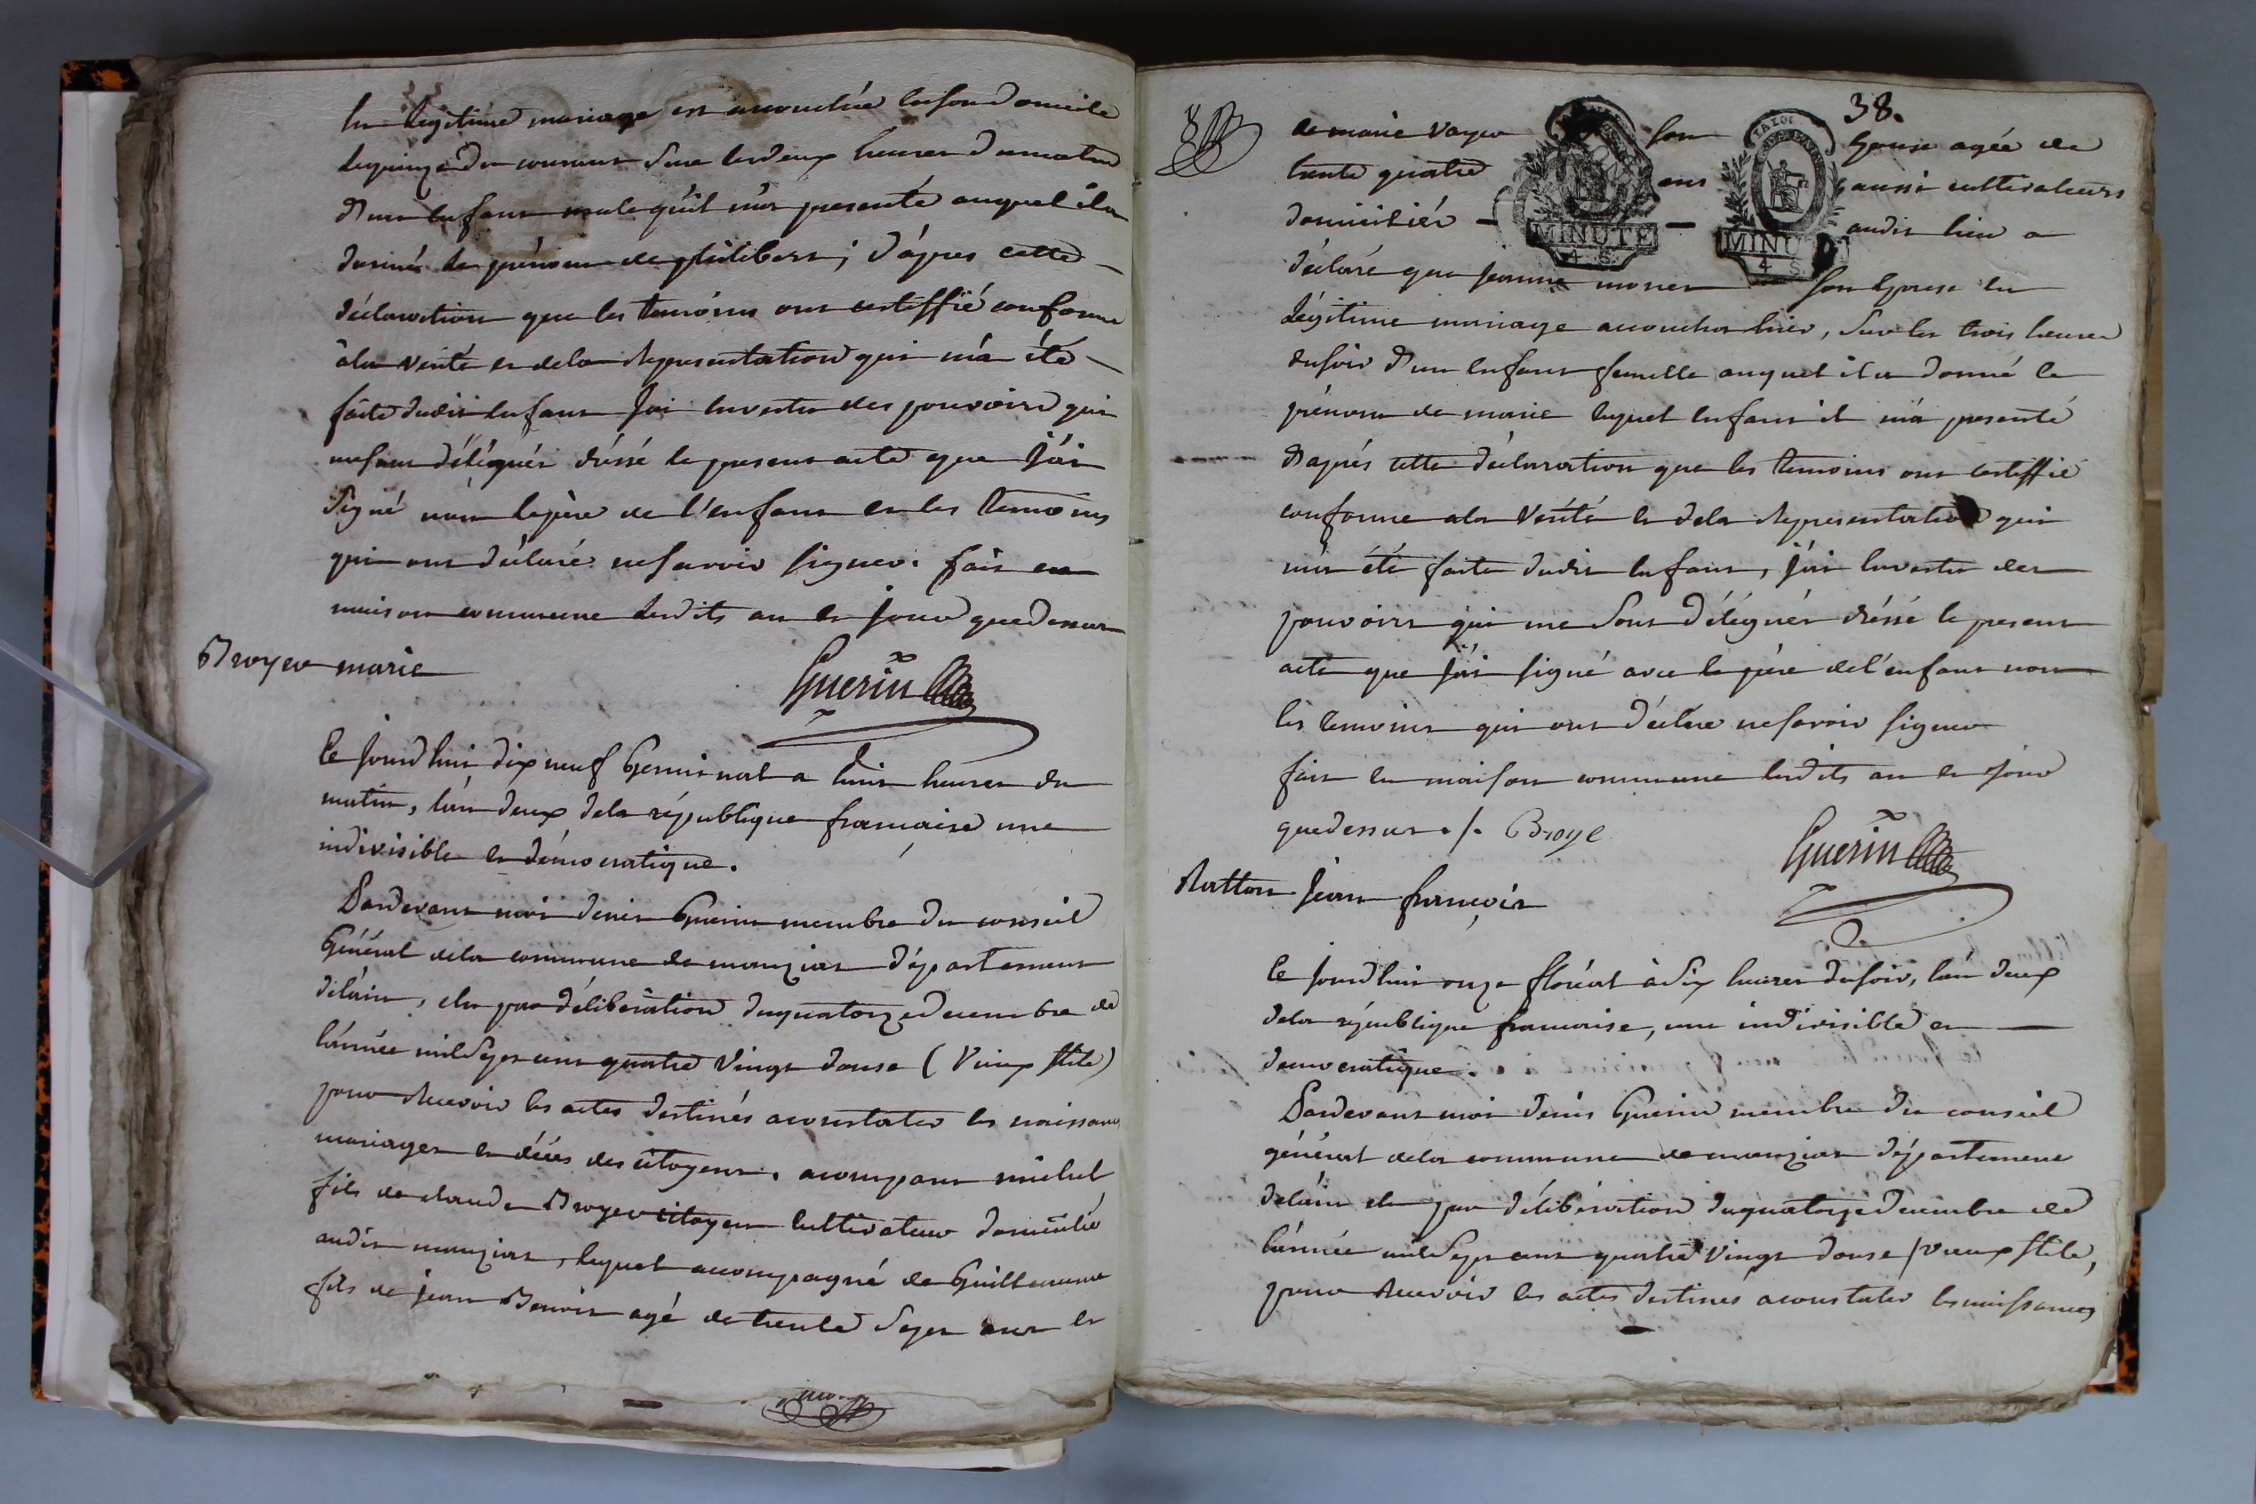 en légitime mariage est accouchée en son domicile
le quinze du courant sur les deux heures du matin
d'un enfant male qu'il m'a presenté auquel il a
donné le prénom de philibert ; d'après cette
déclaration que les temoins ont certiffié conforme
à la verité et de la Representation qui m'a été
faite dudit enfant J'ai en vertu des pouvoirs qui
me sont délégués dréssé le present acte que J'ai
Signé non le père de l'enfant et les temoins
qui ont déclaré ne savoir signer. fait en
maison commune lesdits an et jour que dessus
Guerin
Broyer marie
Ce jourd'hui dix neuf Germinal a huit heures du
matin, l'an deux de la république francaise une
indivisible et démocratique.
Pardevant moi denis Guerin membre du conseil
Général de la commune de manziat département
de l'ain, elu par délibération du quatorze decembre de
l'année mil Sept cent quatre vingt douse ( Vieux stile )
pour Recevoir les actes destinés a constater les naissances
mariages et décés des citoyens. a comparu michel
fils de claude Broyer citoyen cultivateur domicilié
audit manziat, lequel accompagné de Guillaume
fils de jean Benoit agé de trente Sept ans et
38.
de marie Voyer son Epouse agée de
trente quatre ans aussi cultivateurs
domiciliés — — audit lieu a
MINUTE
4 S.
MINU
4 S
déclaré que jeanne monet son Epouse en
légitime mariage accoucha hier, sur les trois heures
du soir d'un enfant femelle auquel il a donné le
prénom de marie lequel enfant il m'a presenté
d'après cette déclaration que les temoins ont certiffié
conforme a la Vérité et de la Representation qui
m'a été faite dudit enfant, j'ai en vertu des
pouvoirs qui me Sont délégués dréssé le present
acte que j'ai signé avec le père de l'enfant non
les temoins qui ont déclaré ne savoir signer
fait en maison commune lesdits an et jour
que dessus ./. Broye
Guerin
Ratton Jean françois
Ce jourd'hui onze floréal à Six heures du soir, l'an deux
de la république francaise, une indivisible et
democratique.
Pardevant moi denis Guerin membre du conseil
général de la commune de manziat département
de l'ain elu par délibération du quatorze decembre de
l'année mil Sept cent quatre vingt douse / vieux stile,
pour Recevoir les actes destinés a constater les naissances